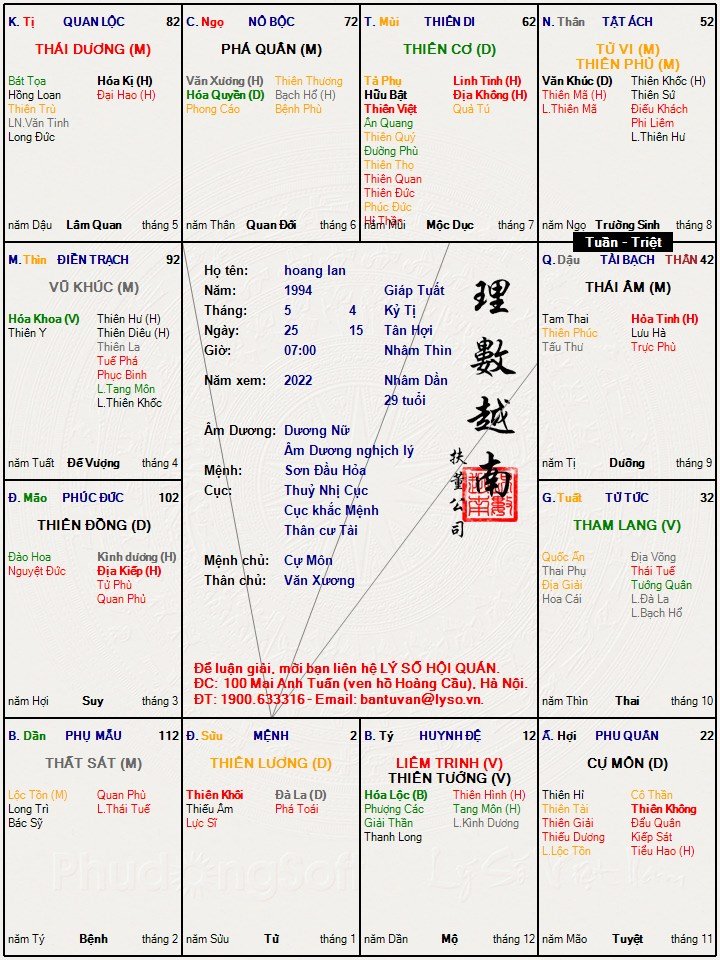 K. Tị QUAN LỘC 82
THÁI DƯƠNG (M)
Bát Tọa Hóa Kị (H)
Hồng Loan Đại Hao (H)
Thiên Trù
LN.Văn Tinh
Long Đức
năm Dậu Lâm Quan tháng 5
C. Ngọ NÔ BỘC 72
PHÁ QUÂN (M)
Văn Xương (H) Thiên Thương
Hóa Quyền (D) Bạch Hổ (H)
Phong Cáo Bệnh Phù
năm Thân Quan Đới tháng 6
T. Mùi THIÊN DI 62
THIÊN CƠ (D)
Tả Phụ Linh Tinh (H)
Hữu Bật Địa Không (H)
Thiên Việt Quả Tú
Ân Quang
Thiên Quý
Đường Phù
Thiên Thọ
Thiên Quan
Thiên Đức
Phúc Đức
Hỉ Thần
năm Mùi Mộc Dục tháng 7
N. Thân TẬT ÁCH 52
TỬ VI (M)
THIÊN PHỦ (M)
Văn Khúc (D) Thiên Khốc (H)
Thiên Mã (H) Thiên Sứ
L.Thiên Mã Điếu Khách
Phi Liêm
L.Thiên Hư
năm Ngọ Trường Sinh tháng 8
Tuần - Triệt
M. Thìn ĐIỀN TRẠCH 92
VŨ KHÚC (M)
Hóa Khoa (V) Thiên Hư (H)
Thiên Y Thiên Diêu (H)
Thiên La
Tuế Phá
Phục Binh
L.Tang Môn
L.Thiên Khốc
năm Tuất Đế Vượng tháng 4
Họ tên: hoang lan
Năm: 1994 Giáp Tuất
Tháng: 5 4 Kỷ Tị
Ngày: 25 15 Tân Hợi
Giờ: 07:00 Nhâm Thìn
Năm xem: 2022 Nhâm Dần
29 tuổi
Âm Dương: Dương Nữ
Âm Dương nghịch lý
Mệnh: Sơn Đầu Hỏa
Cục: Thuỷ Nhị Cục
Cục khắc Mệnh
Thân cư Tài
Mệnh chủ: Cự Môn
Thân chủ: Văn Xương
理數越南
扶董公司
Để luận giải, mời bạn liên hệ LÝ SỐ HỘI QUÁN.
ĐC: 100 Mai Anh Tuấn (ven hồ Hoàng Cầu), Hà Nội.
ĐT: 1900.633316 - Email: bantuvan@lyso.vn.
Q. Dậu TÀI BẠCH THÂN 42
THÁI ÂM (M)
Tam Thai Hỏa Tinh (H)
Thiên Phúc Lưu Hà
Tấu Thư Trực Phù
năm Tị Dưỡng tháng 9
Đ. Mão PHÚC ĐỨC 102
THIÊN ĐỒNG (D)
Đào Hoa Kình dương (H)
Nguyệt Đức Địa Kiếp (H)
Tử Phù
Quan Phủ
năm Hợi Suy tháng 3
G. Tuất TỬ TỨC 32
THAM LANG (V)
Quốc Ấn Địa Võng
Thai Phụ Thái Tuế
Địa Giải Tướng Quân
Hoa Cái L.Đà La
L.Bạch Hổ
năm Thìn Thai tháng 10
B. Dần PHỤ MẪU 112
THẤT SÁT (M)
Lộc Tồn (M) Quan Phù
Long Trì L.Thái Tuế
Bác Sỹ
năm Tý Bệnh tháng 2
Đ. Sửu MỆNH 2
THIÊN LƯƠNG (D)
Thiên Khôi Đà La (D)
Thiếu Âm Phá Toái
Lực Sĩ
năm Sửu Tử tháng 1
B. Tý HUYNH ĐỆ 12
LIÊM TRINH (V)
THIÊN TƯỚNG (V)
Hóa Lộc (B) Thiên Hình (H)
Phượng Các Tang Môn (H)
Giải Thần L.Kình Dương
Thanh Long
năm Dần Mộ tháng 12
Ấ. Hợi PHU QUÂN 22
CỰ MÔN (D)
Thiên Hỉ Cô Thần
Thiên Tài Thiên Không
Thiên Giải Đẩu Quân
Thiếu Dương Kiếp Sát
L.Lộc Tồn Tiểu Hao (H)
năm Mão Tuyệt tháng 11